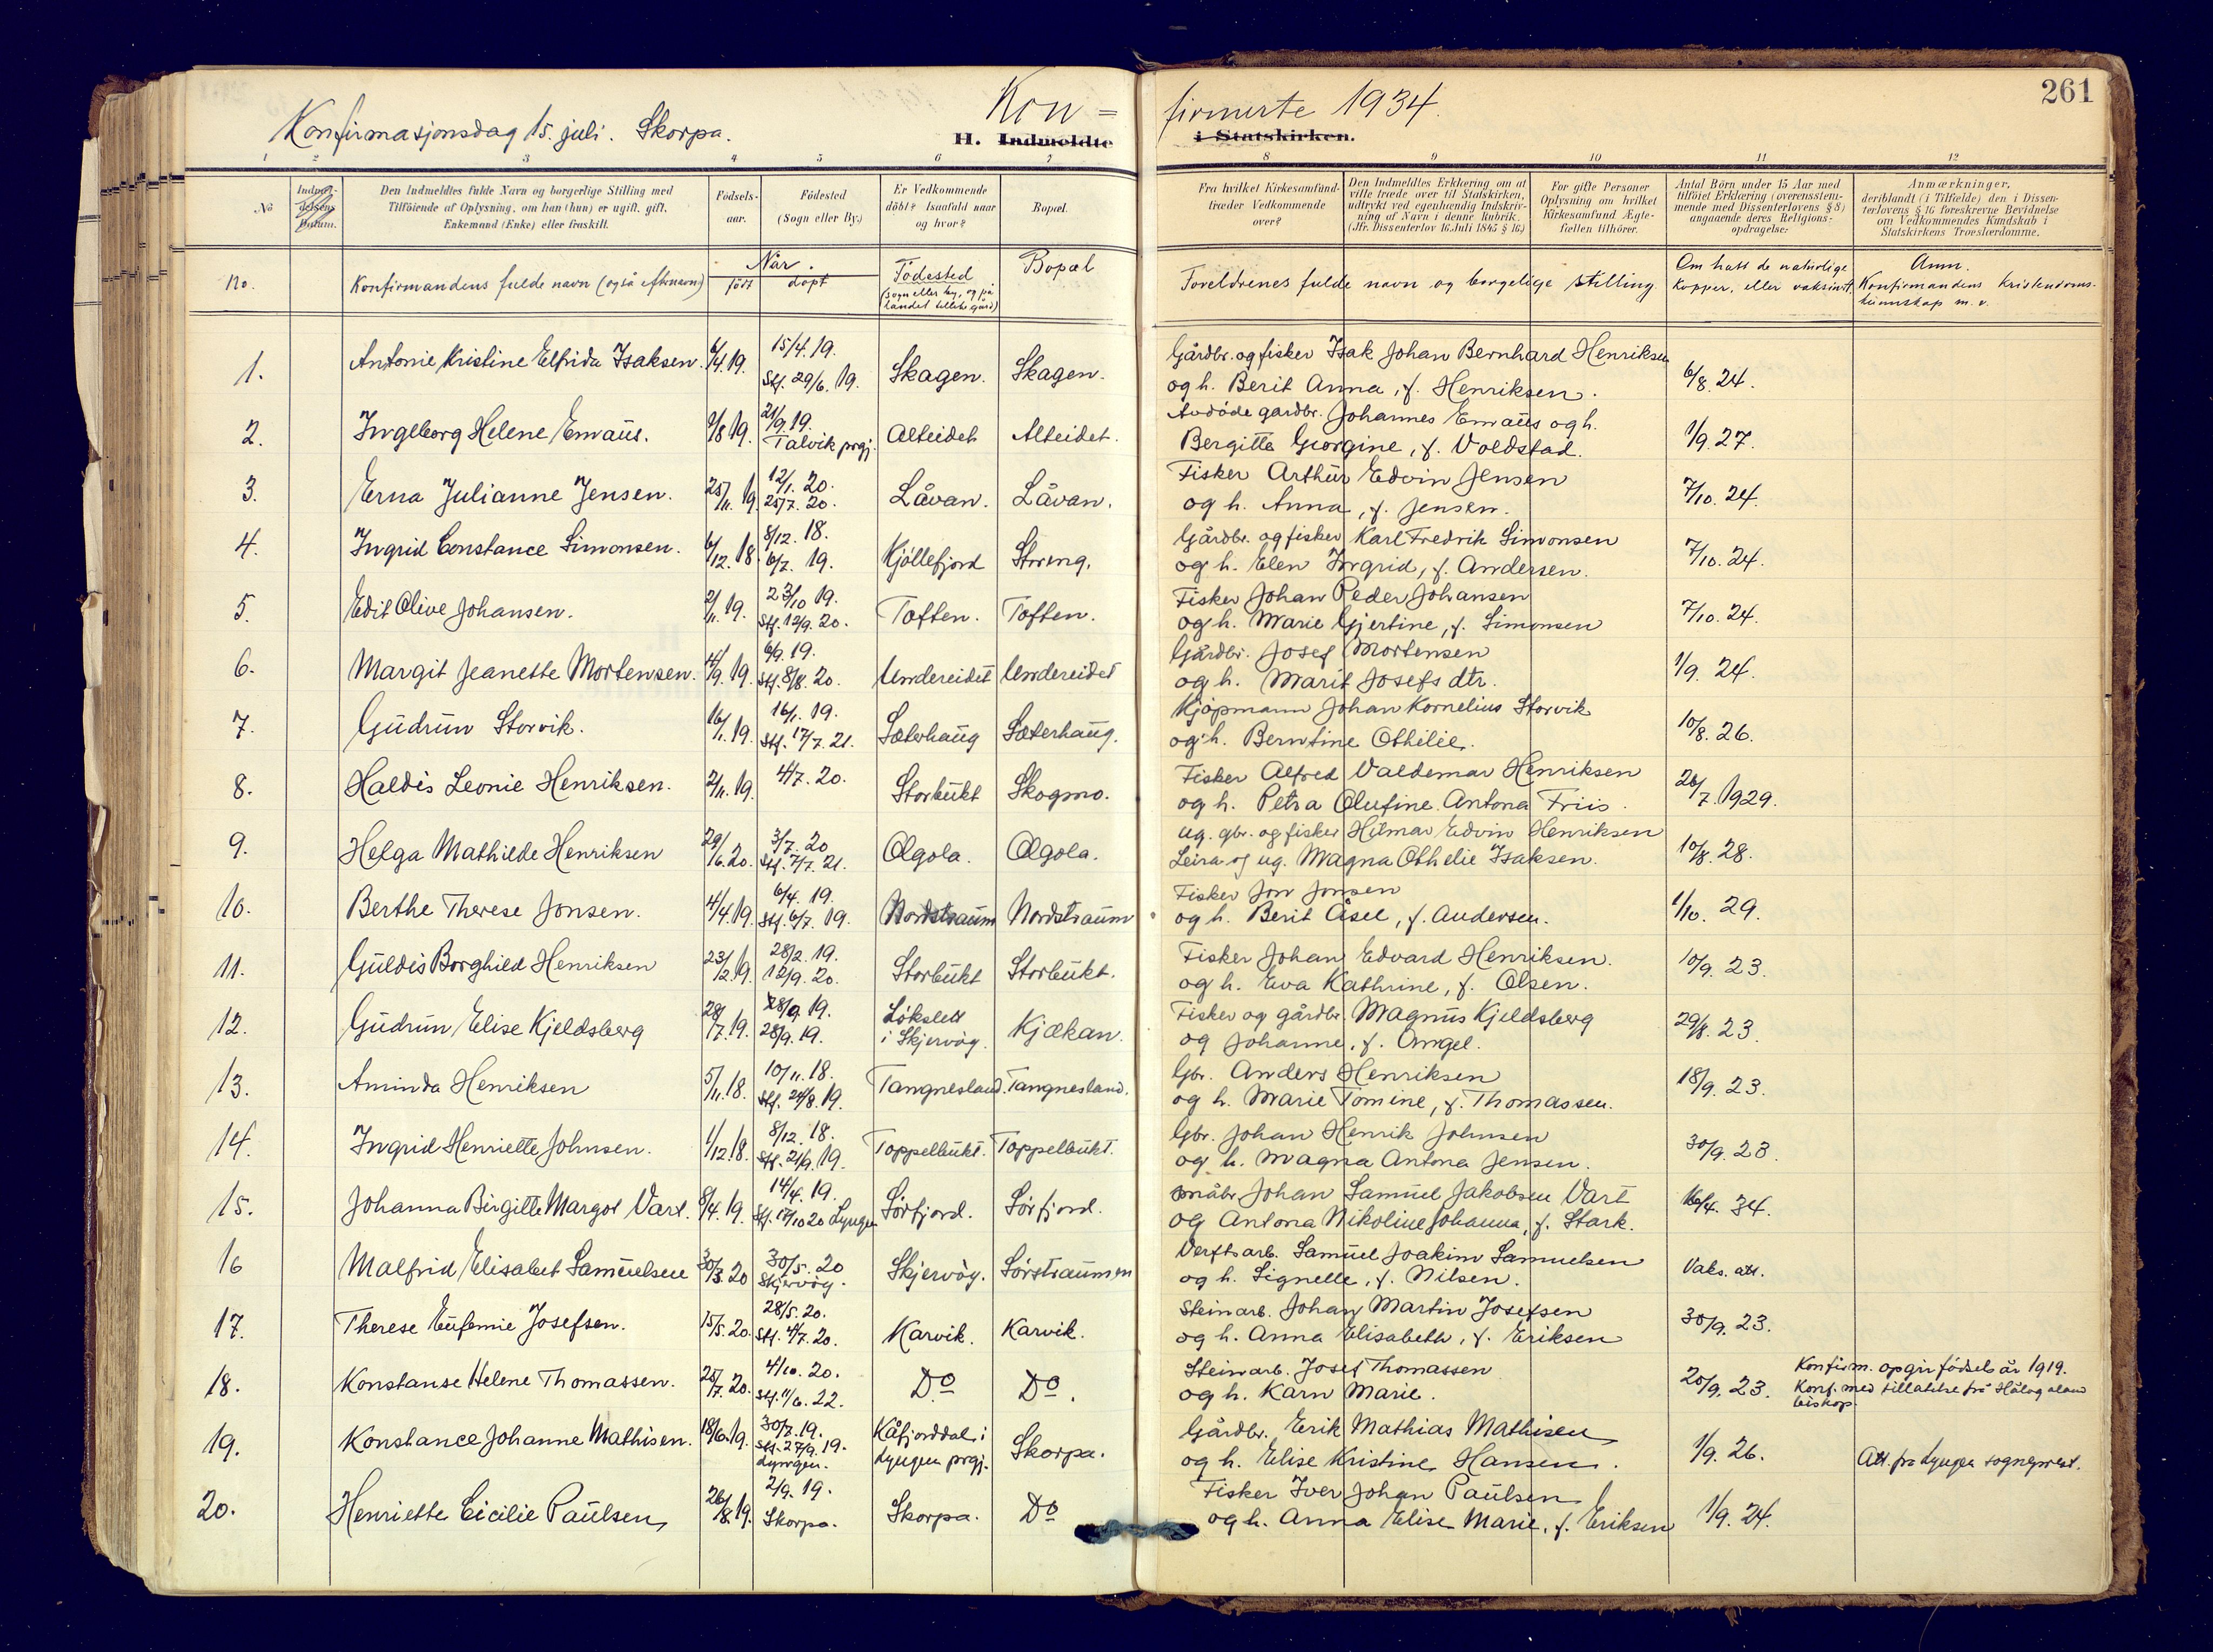 261
Konfirmasjonsdag 15. juli. Skorpa. Kon= firmerte 1934.
H. Indmeldte i Statskirken.
1 2 3 4 5 6 7 8 9 10 11 12
No Indmeldelsens Datum. Den Indmeldtes fulde Navn og borgerlige Stilling med Tilföiende af Oplysning, om han (hun) er ugift, gift, Enkemand (Enke) eller fraskilt. Födsels-aar. Födested (Sogn eller By.) Er Vedkommende döbt? Isaafald naar og hvor? Bopæl. Fra hvilket Kirkesamfund træder Vedkommende over? Den Indmeldtes Erklæring om at ville træde over til Statskirken, udtrykt ved egenhændig Indskrivning af Navn i denne Rubrik. (Jfr. Dissenterlov 16. Juli 1845 § 16.) For gifte Personer Oplysning om hvilket Kirkesamfund Ægtefællen tilhörer. Antal Börn under 15 Aar med tilföiet Erklæring (overensstemmende med Dissenterlovens § 8) angaaende deres Religionsopdragelse: Anmærkninger, deriblandt (i Tilfælde) den i Dissenterlovens § 16 foreskrevne Bevidnelse om Vedkommendes Kundskab i Statskirkens Troeslærdomme.
No. Konfirmandens fulde navn (også efternavn) Når. født døpt Födested (sogn eller by, og på landet tillike gård) Bopæl Foreldrenes fulde navn og borgelige stilling. Om hatt de naturlige kopper, eller vaksinert. Anm. Konfirmandens kristendoms-kunnskap m. v.
1. Antonie Kristine Elfrida Isaksen. 6/4 19. 15/4. 19. Stf. 29/6. 19. Skagen. Skagen. Gårdbr. og fisker Isak Johan Bernhard Henriksen
og h. Berit Anna, f. Henriksen. 6/8. 24.
2. Ingleborg Helene Emaus. 9/8 19. 21/9. 19. Talvik prgj. Alteidet Alteidet. Avdöde gardbr. Johannes Emaus og h.
Bergitte Georgine, f. Voldstad. 1/9. 27.
3. Erna Julianne Jensen. 25/11. 19. 12/1. 20. 25/7. 20. Låvan. Låvan. Fisker Arthur Edvin Jensen
og h. Anna, f. Jensen. 7/10. 24.
4. Ingrid Constance Simonsen. 6/12. 18. 8/12. 18. 6/7. 19. Kjöllefjord Storeng. Gårdbr. og fisker Karl Fredrik Simonsen
og h. Elen Ingrid, f. Andersen. 7/10. 24.
5. Edit Olive Johansen. 2/11. 19. 23/10 19. Stf. 12/9. 20. Toften. Toften. Fisker Johan Peder Johansen
og h. Marie Gjertine, f. Simonsen 7/10. 24.
6. Margit Jeanette Mortensen. 4/9. 19. 6/9. 19. Stf. 8/8. 20. Undereidet Undereidet Gårdbr. Josef Mortensen
og h. Marit Josefs dtr. 1/9. 24.
7. Gudrun Storvik. 16/1. 19. 16/1. 19. Stf. 17/7. 21. Sæterhaug Sæterhaug. Kjöpmann Johan Kornelius Storvik
og h. Berntine Othilie. 10/8. 26.
8. Haldis Leonie Henriksen. 2/11. 19. 4/7. 20. Storbukt Skogmo. Fisker Alfred Valdemar Henriksen
og h. Petra Olufine Antona Friis. 26/7. 1929.
9. Helga Mathilde Henriksen 29/6. 20. 3/7. 20 Stf. 7/7. 21. Olgola. Olgola. ug. gbr. og fisker Hilmar Edvin Henriksen
Leira og ug. Magna Othelie Isaksen. 10/8. 28.
10. Berthe Therese Jonsen. 4/4. 19. 6/4. 19. Stf. 6/7. 19. Nordstraum Nordstraum Fisker Jon Jonsen
og h. Berit Åsel, f. Andersen. 1/10. 29.
11. Guldis Borghild Henriksen 23/12. 19. 28/2. 19. 12/9. 20. Storbukt Storbukt. Fisker Johan Edvard Henriksen.
og h. Eva Kathrine, f. Olsen. 10/9. 23.
12. Gudrun Elise Kjeldsberg 28/7. 19. 28/9. 19. 28/9. 19. Lökslett i Skjervöy. Kjækan. Fisker og gårdbr. Magnus Kjeldsberg
og Johanne, f. Angel. 29/8. 23.
13. Aminda Henriksen 5/11. 18. 10/11. 18. Stf. 24/8. 19. Tangnesland. Tangnesland. Gbr. Anders Henriksen
og h. Marie Tomine, f. Thomassen. 18/9. 23.
14. Ingrid Henriette Johnsen. 1/12. 18. 8/12. 18. Stf. 21/9. 19. Toppelbukt. Toppelbukt. Gbr. Johan Henrik Johnsen
og h. Magna Antona Jensen. 30/9. 23.
15. Johanna Birgitte Margot Vart. 8/4. 19. 14/4. 19. Stf. 17/10 20 Lyngen Sörfjord. Sörfjord. småbr. Johan Samuel Jakobsen Vart
og Antona Nikoline Johanna, f. Stark. 16/4. 34.
16 Malfrid Elisabet Samuelsen 30/3. 20 30/5. 20 Skjervöy. Skjervöy. Sörstraumen Verftsarb. Samuel Joakim Samuelsen
og h. Signelle, f. Nilsen. Vaks. att.
17. Therese Eufemie Josefsen. 15/5. 20. 28/5. 20. Stf. 4/7. 20. Karvik. Karvik. Steinarb. Johan Martin Josefsen
og h. Anna Elisabeth, f. Eriksen 30/9. 23.
18. Konstanse Helene Thomassen. 25/7. 20. 4/10. 20. Stf. 11/6. 22. Do Do. Steinarb. Josef Thomassen
og h. Karn Marie. 20/9. 23. Konfirm. opgir födselsår 1919. Konf. med tillatelse frå Hålogaland biskop.
19. Konstance Johanne Mathisen. 18/6. 19. 30/7. 19. Stf. 27/9. 19. Lyngen. Kåfjorddal i Lyngen prgj. Skorpa. Gårdbr. Erik Mathias Mathisen
og h. Elise Kristine Hansen. 1/9. 26. Att. fra Lyngen sogneprest.
20. Henriette Cicilie Paulsen 26/8. 19. 2/9. 19. Skorpa. Skorpa. Do Fisker Iver Johan Paulsen
og h. Anna Elise Marie, f. Eriksen 1/9. 24.